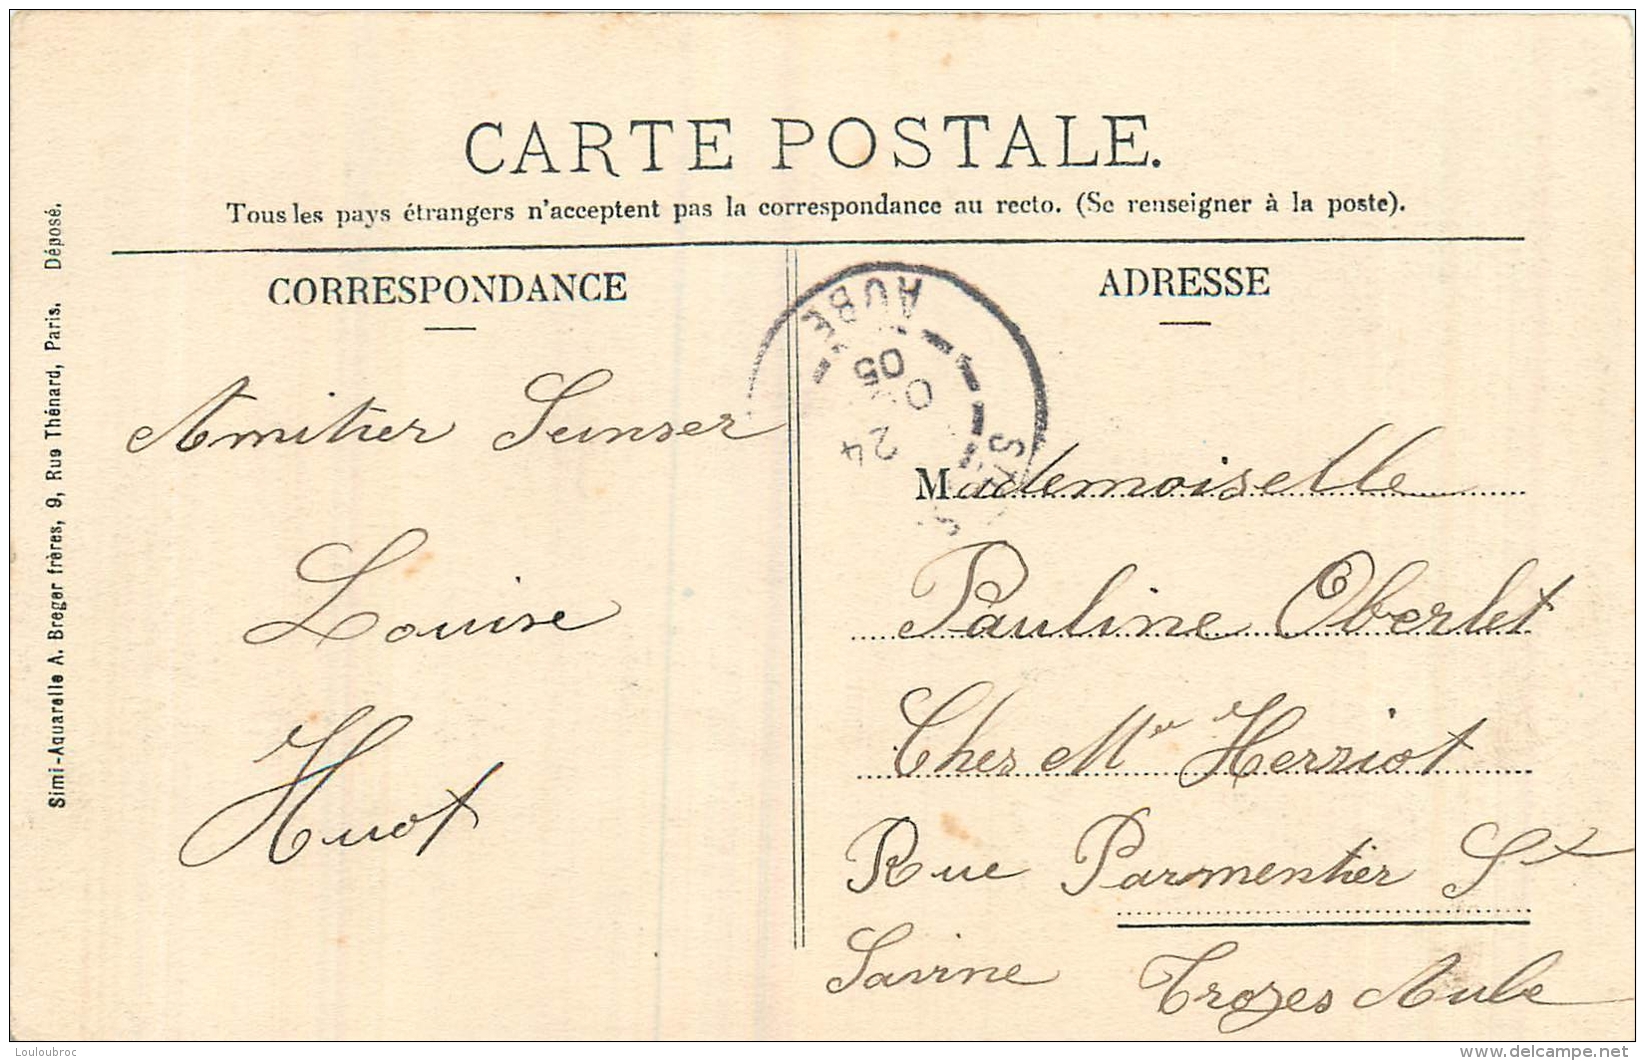 CARTE POSTALE.
Tous les pays étrangers n'acceptent pas la correspondance au recto. (Se renseigner à la poste).
CORRESPONDANCE
Amitier Sinser
Louise
Huot
ADRESSE
Mademoiselle
Pauline Oberlet
Ches Me Herriot
Rue Parmentier St
Savine Troyes Aube
AUBE
05
24
Simi-Aquarelle A. Breger frères, 9, Rue Thénard, Paris. Déposé.
Louloubroc
delcampe.net